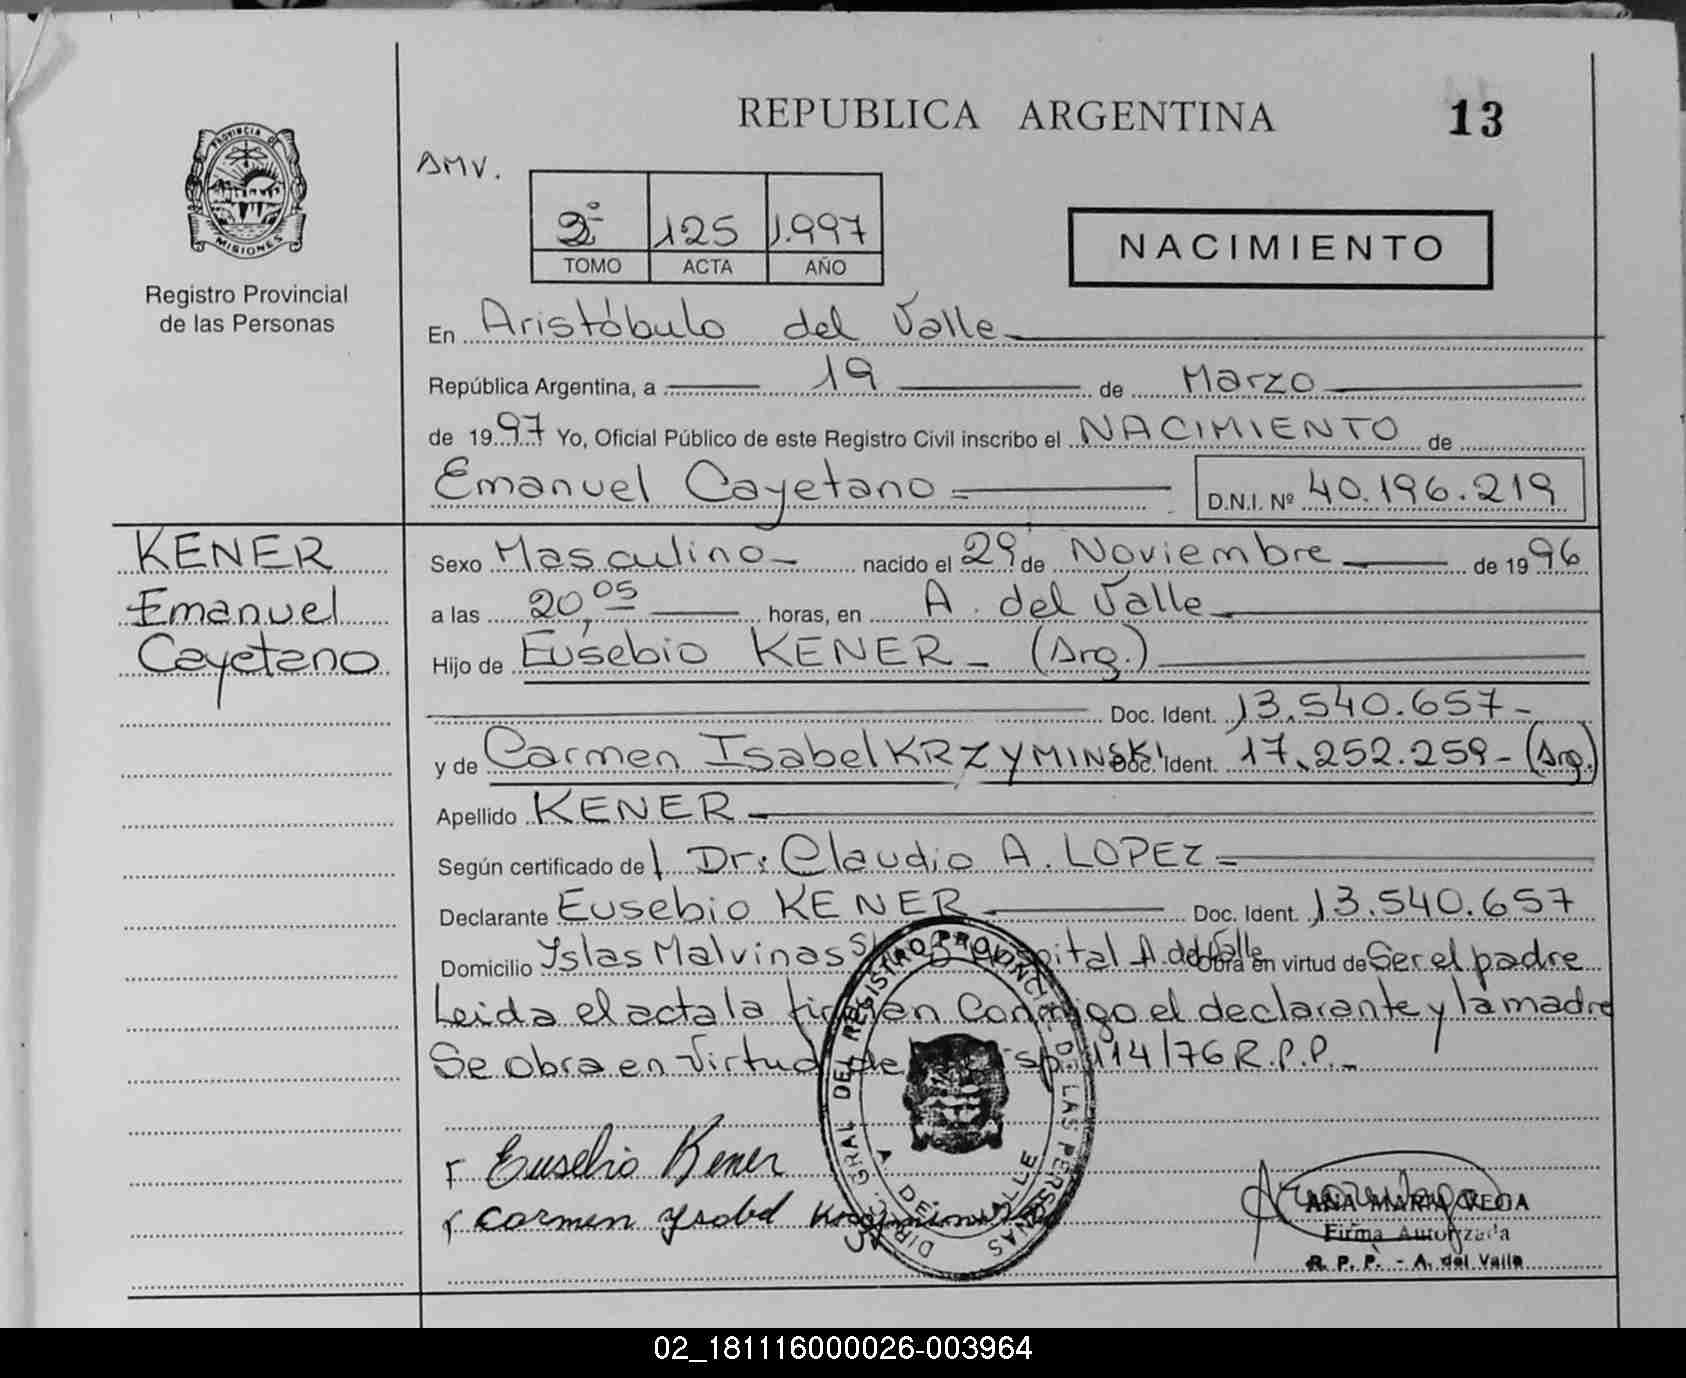 REPUBLICA ARGENTINA 13
PROVINCIA DE
MISIONES
Registro Provincial
de las Personas
AMV.
2º 125 1.997
TOMO ACTA AÑO
NACIMIENTO
En Aristóbulo del Valle
República Argentina, a 19 de Marzo
de 1997 Yo, Oficial Público de este Registro Civil inscribo el NACIMIENTO de
Emanuel Cayetano = D.N.I. Nº 40.196.219
KENER
Emanuel
Cayetano
Sexo Masculino - nacido el 29 de Noviembre de 1996
a las 20,05 horas, en A. del Valle
Hijo de Eusebio KENER - (Arg.)
Doc. Ident. 13.540.657-
y de Carmen Isabel KRZYMINSKI Doc. Ident. 17.252.259- (Arg.)
Apellido KENER
Según certificado de Dr: Claudio A. LOPEZ =
Declarante EUSEBIO KENER Doc. Ident. 13.540.657
Domicilio Yslas Malvinas A. del Valle Obra en virtud de Ser el padre
Leida el acta la firman Conmigo el declarante y la madre
Se obra en Virtud de Disp. 114/76 R.P.P.-
Eusebio Kener
Carmen Ysabel
DIRC. GRAL DEL REGISTRO PROVINCIAL DE LAS PERSONAS
A. DEL VALLE
ANA MARIA VEGA
Firma Autorizada
R. P. P. - A. del Valle
02_181116000026-003964